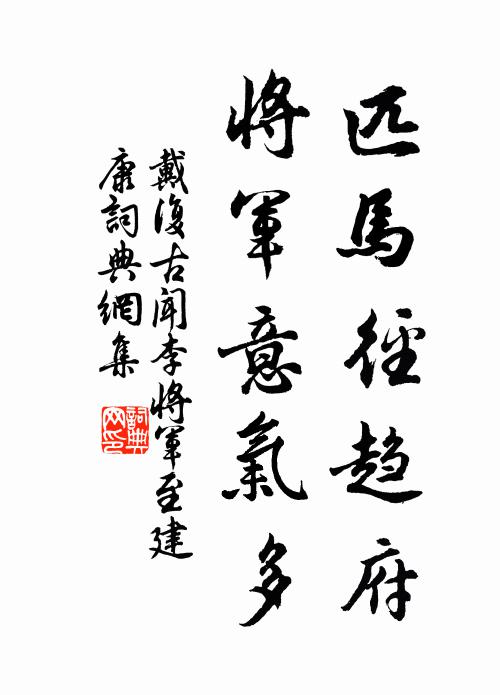 匹馬徑趋府
將軍意氣多
戴復古聞李將軍至建
康詞典網集
詞典
网印